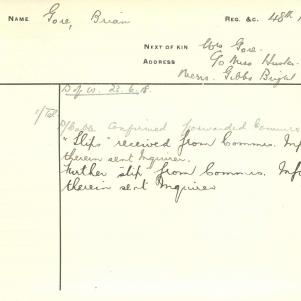 NAME Gore, Brian
REG. &C. 48th
NEXT OF KIN Mrs Gore.
ADDRESS C/o Miss Hunter
Messrs. Gibbs Bright
D of W. 22.6.18.
Cable confirmed forwarded
"Slip" received from Commns. Inf
therein sent Inquirer.
Further slip from Commns. Info
therein sent Inquirer